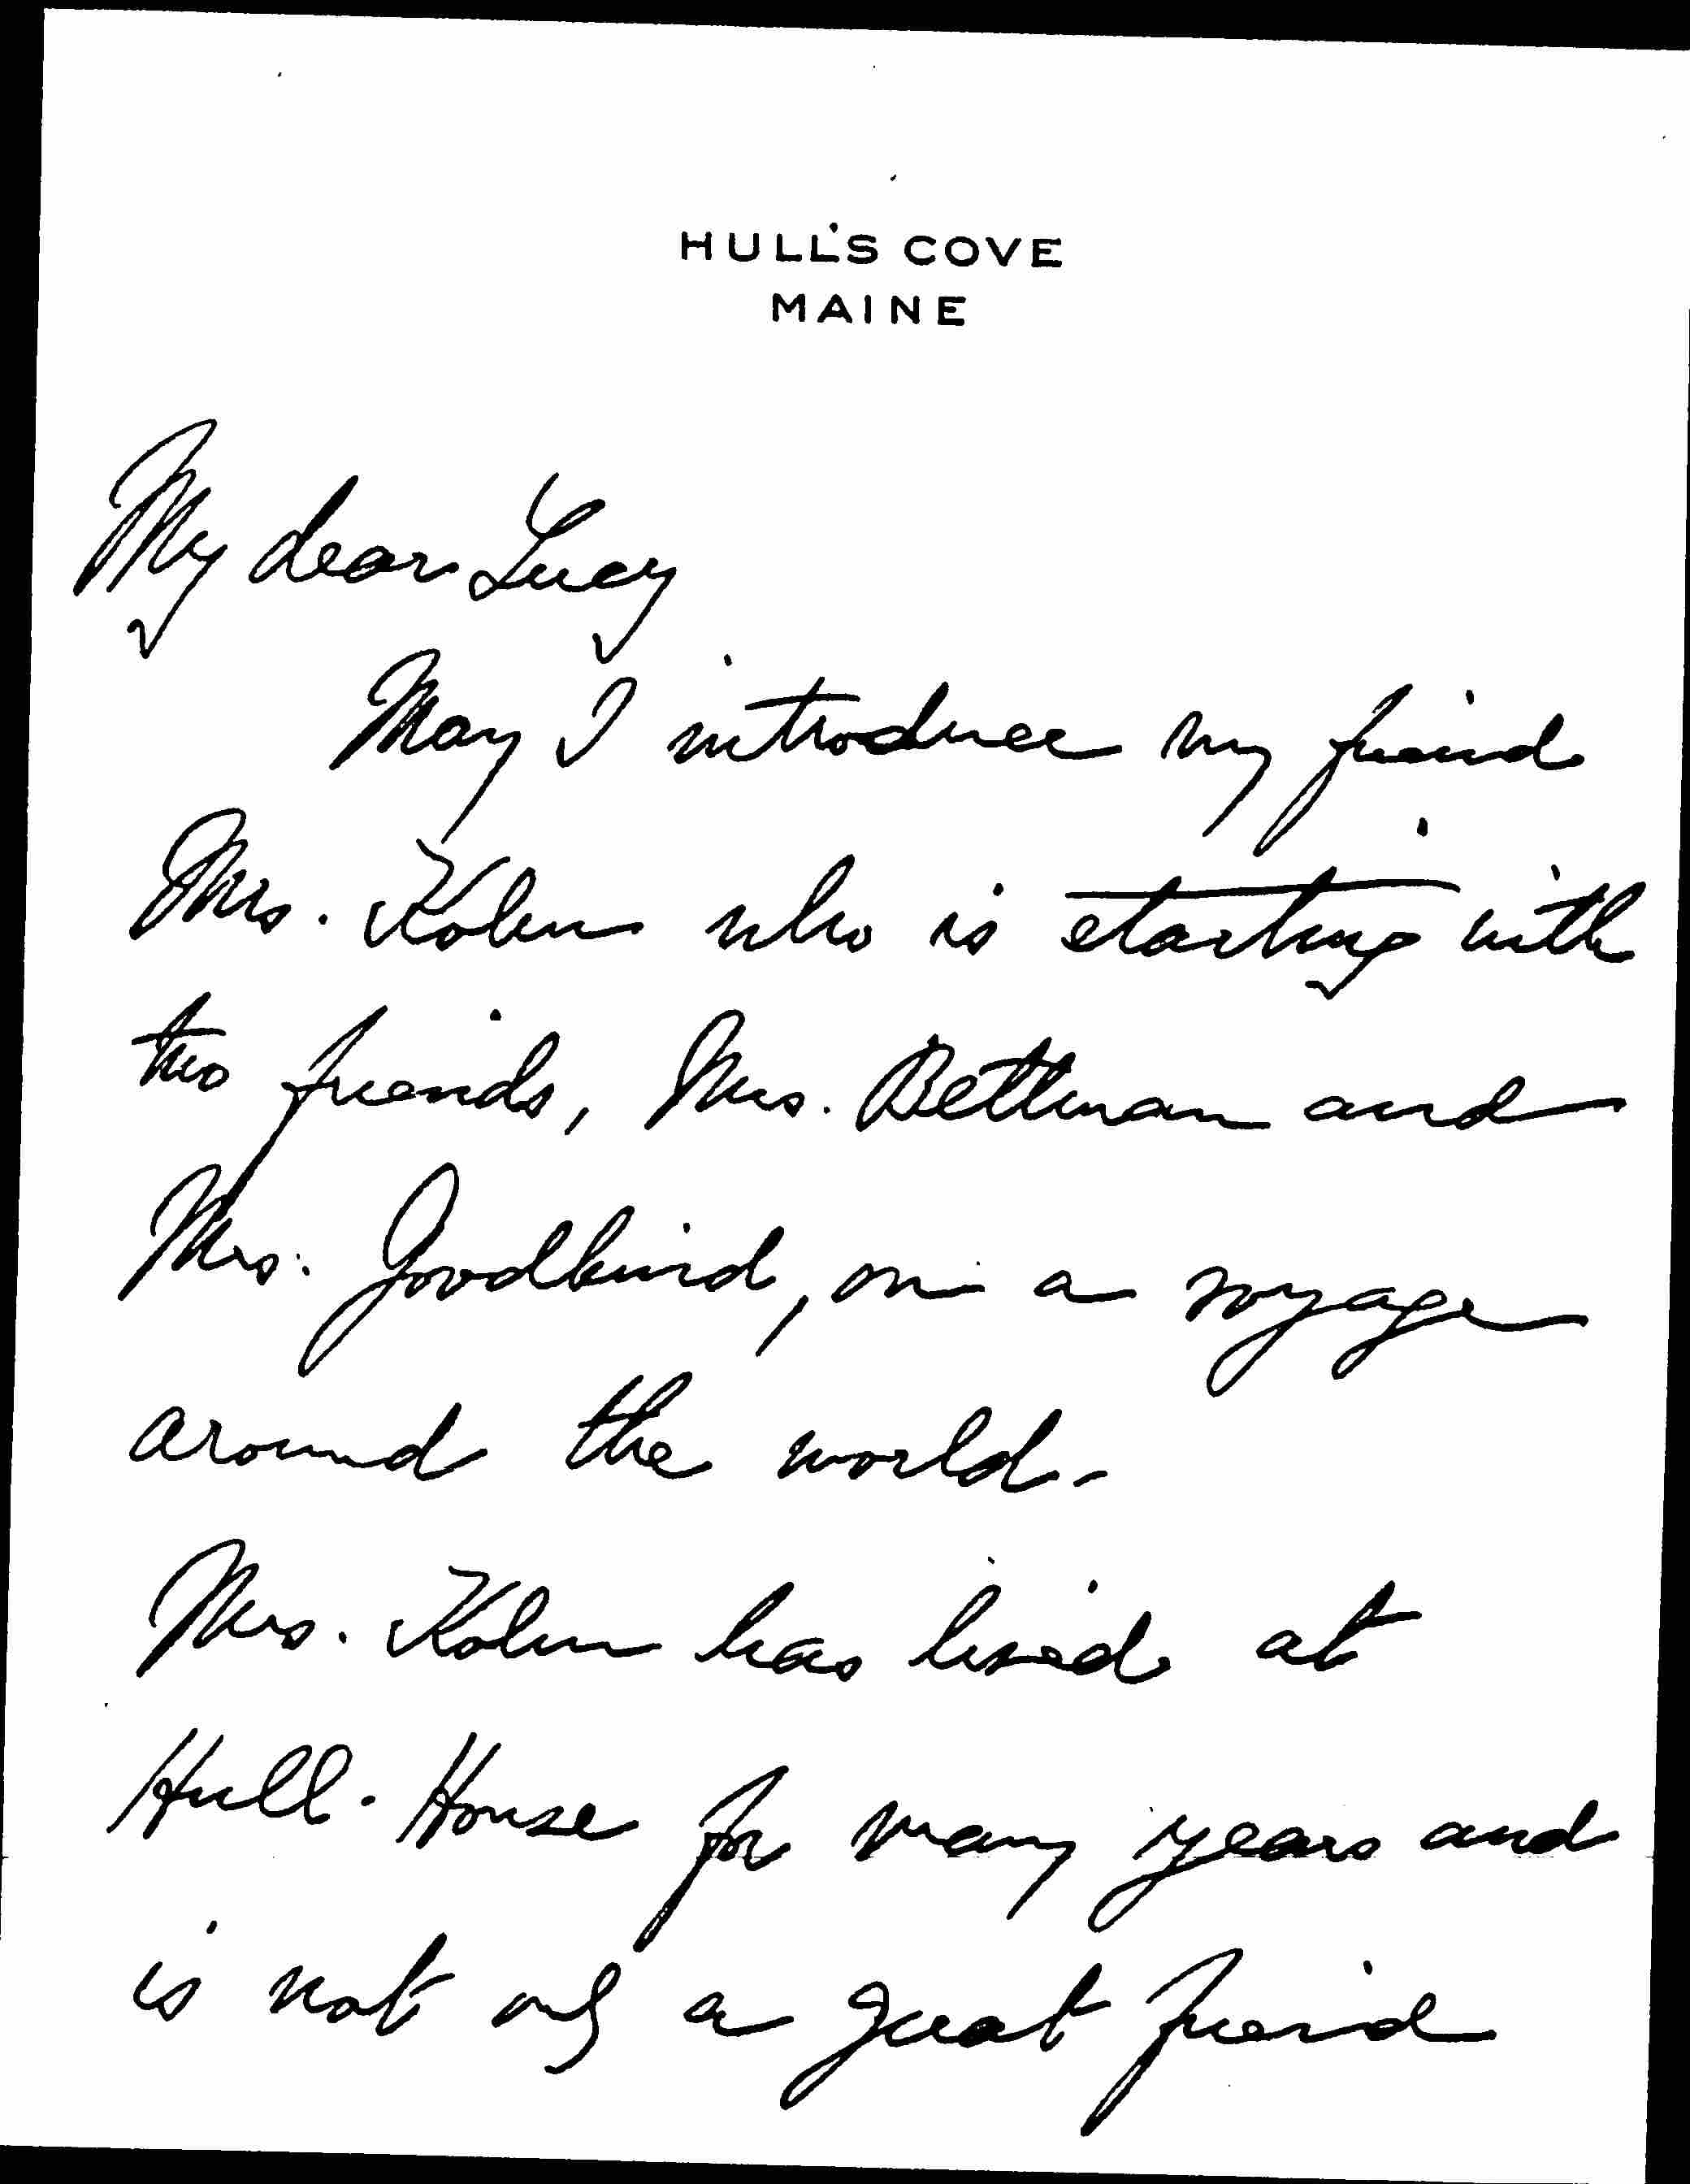 HULL'S COVE
MAINE
My dear Lucy
May I introduce my friend
Mrs. Kohn who is starting with
two friends, Mrs. Bettman and
Mrs. , on a voyage
around the world-
Mrs. Kohn has lived at
Hull-House for many years and
is not only a great friend